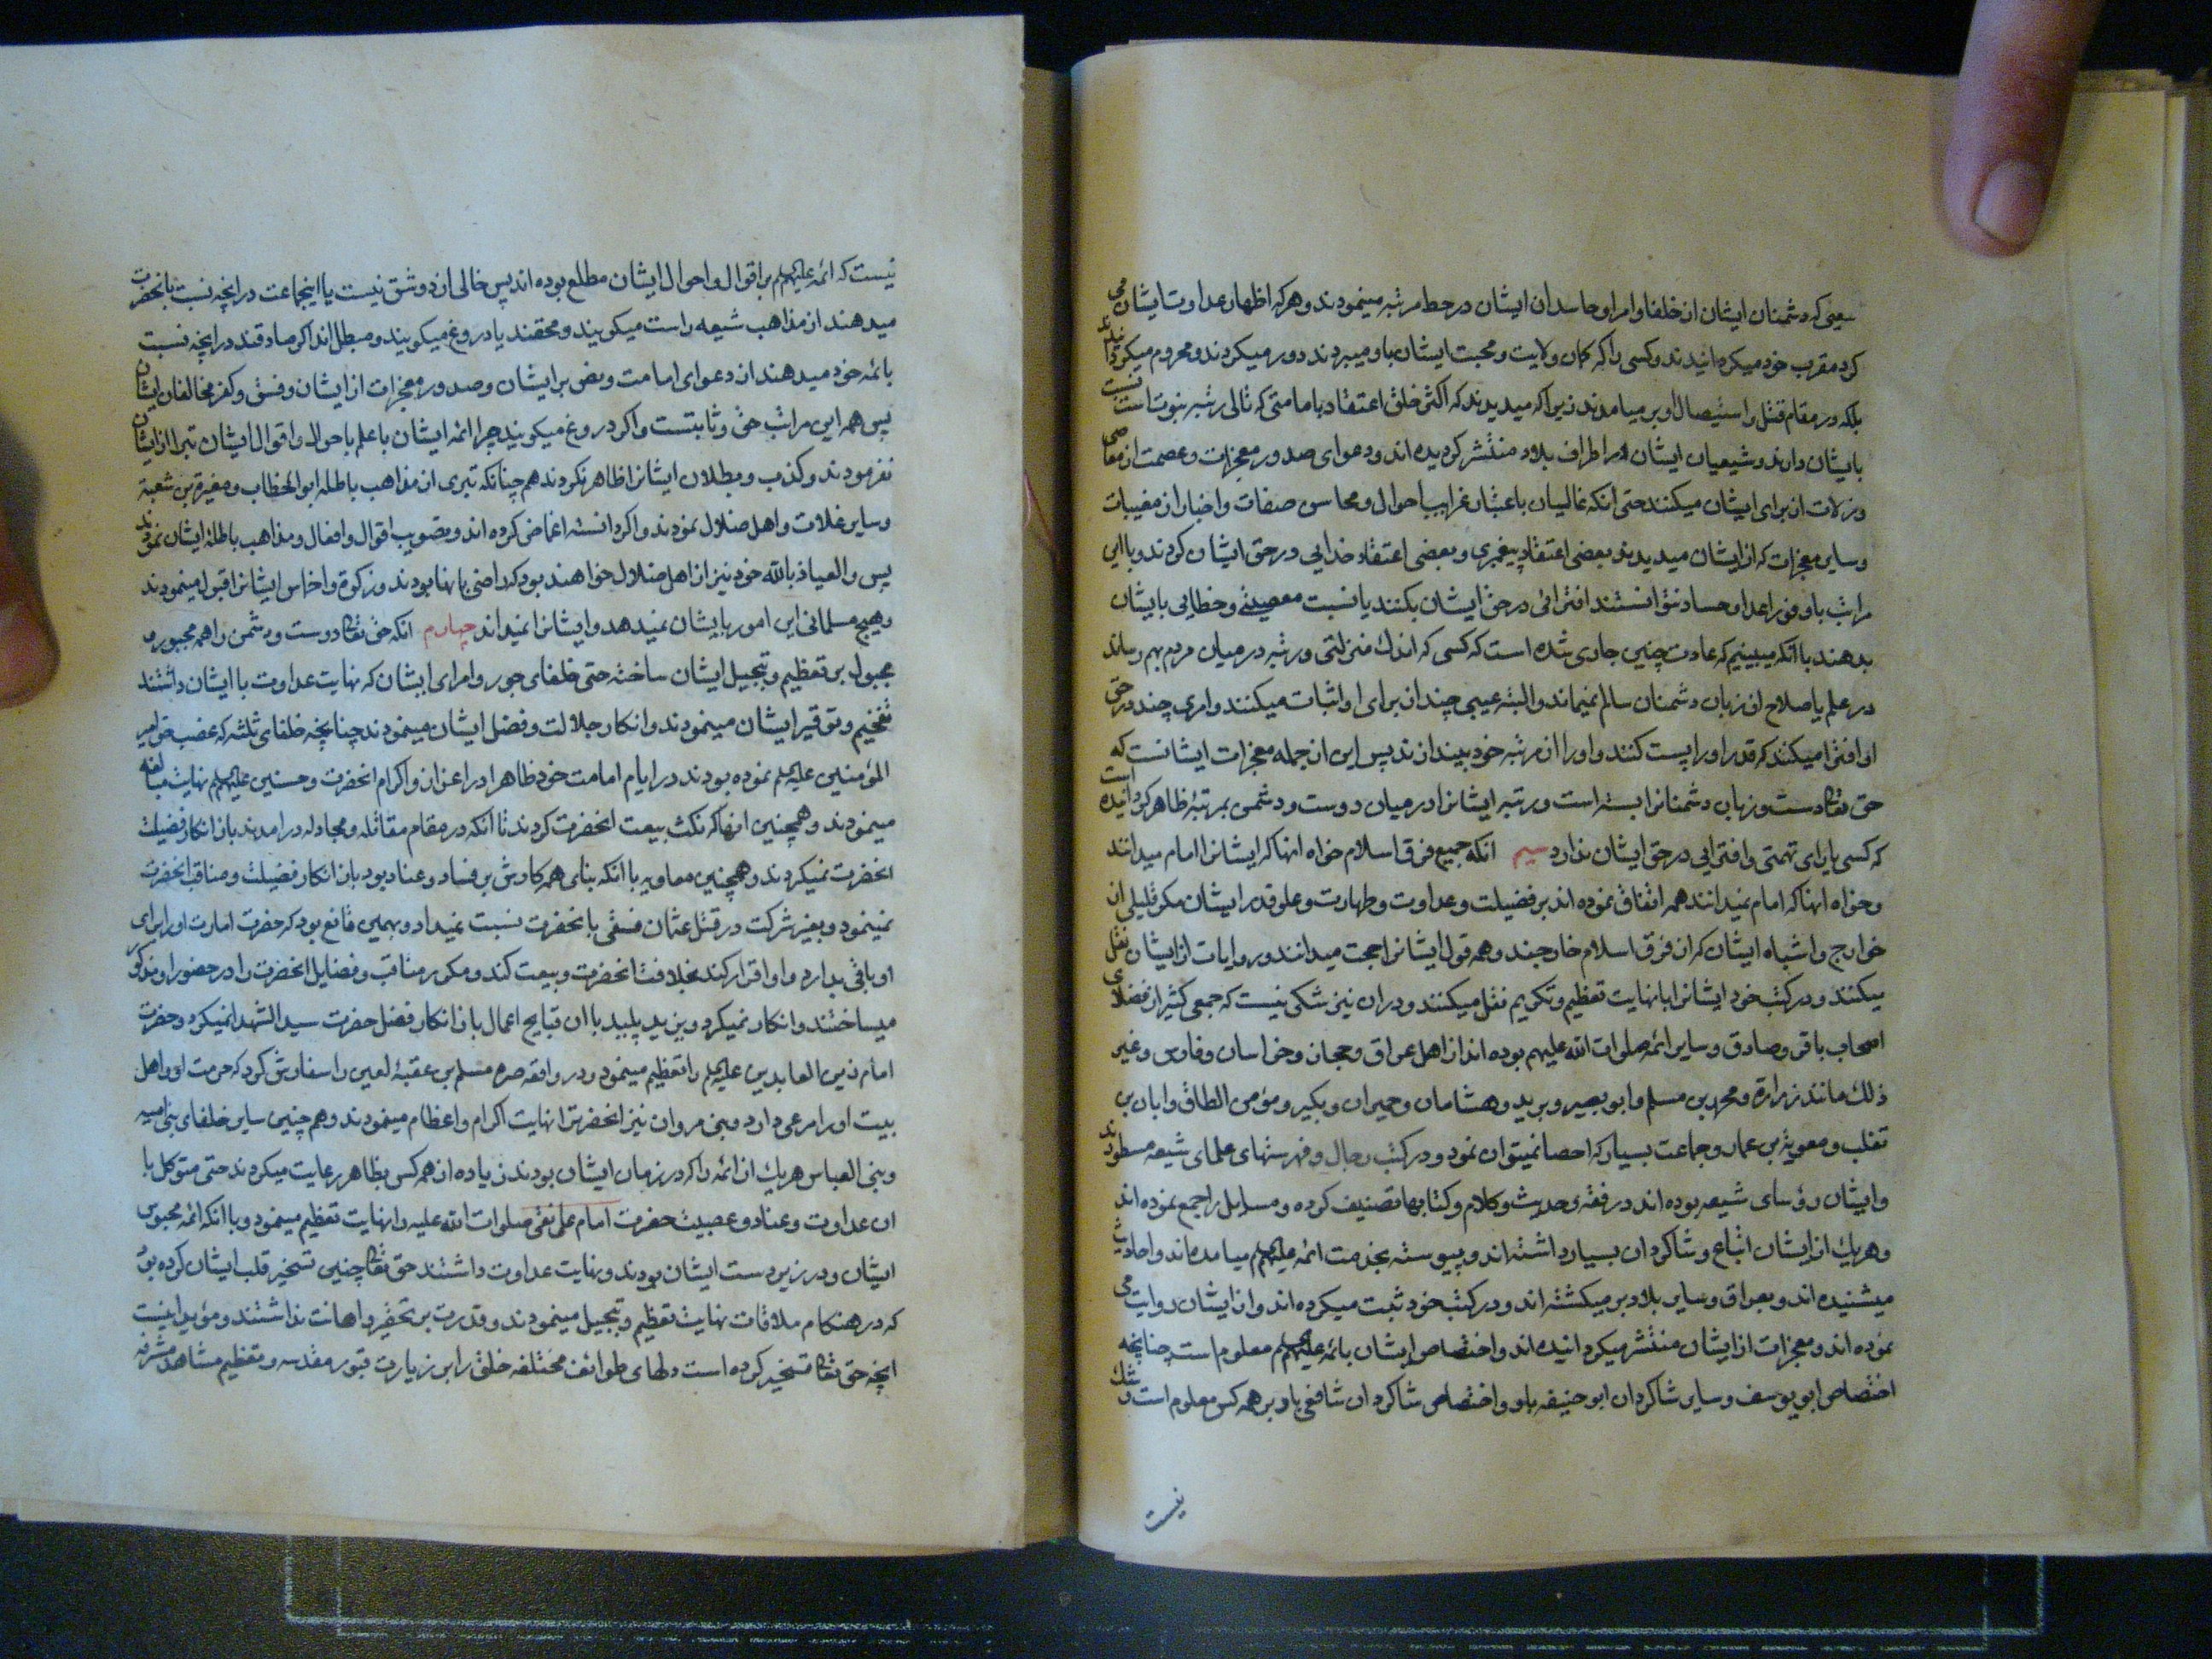 سعیی که دشمنان ایشان از خلفا و امرا و حاسدان ایشان در حط مرتبه مینمودند و هر که اظهار عداوت ایشان می
کرد مقرب خود میکردانیدند و کسی را که کمان ولایت و محبت ایشان باو میبردند دور میکردند و محروم میکردانیدند
بلکه در مقام قتل و استیصال او بر میامدند زیرا که میدیدند که اکثر خلق اعتقاد بامامتی که تالی رتبه نبوتست نسبت
بایشان دارند و شیعیان ایشان در اطراف بلاد منتشر کردیده اند و دعوای صدور معجزات و عصمت از معاصی
و زلات از برای ایشان میکنند حتی آنکه غالیان باعتبار غرایب احوال و محاسن صفات و اخبار از مغیبات
و سایر معجزات که از ایشان میدیدند بعضی اعتقاد پیغمبری و بعضی اعتقاد خدایی در حق ایشان کردند و با این
مراتب با وفور اعدا و حساد نتوانستند افترائی در حق ایشان بکنند یا نسبت معصیتی و خطایی بایشان
بدهند با انکه میبینیم که عادت چنین جاری شده است که کسی که اندک منزلتی و رتبه در میان مردم بهم رساند
در علم یا صلاح از زبان دشمنان سالم نمیماند و البته عیبی چند از برای او اثبات میکنند و امری چند در حق
او افترا میکنند که قدر او را پست کنند و او را از مرتبه خود بیندازند پس این از جمله معجزات ایشانست که
حق تعالی دست و زبان دشمنانرا بسته است و رتبه ایشانرا در میان دوست و دشمن بمرتبهٔ ظاهر کردانیده است
که کسی یارای تهمتی و افترایی در حق ایشان ندارد سیم انکه جمیع فرق اسلام خواه انها که ایشانرا امام میدانند
و خواه انها که امام نمیدانند همه اتفاق نموده اند بر فضیلت و عداوت و طهارت و علو قدر ایشان مکر قلیلی از
خوارج و اشباه ایشان که از فرق اسلام خارجند و همه قول ایشانرا حجت میدانند و روایات از ایشان نقل
میکنند و در کتب خود ایشانرا با نهایت تعظیم و تکریم نقل میکنند و در ان نیز شکی نیست که جمعی کثیر از فضلای
اصحاب باقر و صادق و سایر ائمه صلوات الله علیهم بوده اند از اهل عراق و حجاز و خراسان و فارس و غیر
ذلک مانند زراره و محمد بن مسلم و ابو بصیر و برید و هشامان و حمران و بکیر و مؤمن الطاق و ابان بن
تغلب و معویة بن عمار و جماعت بسیار که احصا نمیتوان نمود و در کتب رجال و فهرستهای علمای شیعه مسطورند
و ایشان رؤسای شیعه بوده اند در فقه و حدیث و کلام و کتابها تصنیف کرده و مسایل را جمع نموده اند
و هر یک از ایشان اتباع و شاکردان بسیار داشته اند و پیوسته بخدمت ائمه علیهم میامده اند و احادیث
میشنیده اند و بعراق و سایر بلاد بر میکشته اند و در کتب خود ثبت میکرده اند و از ایشان روایت می
نموده اند و معجزات از ایشان منتشر میکردانیده اند و اختصاص ایشان بائمه علیهم معلوم است چنانچه
اختصاص ابو یوسف و سایر شاکردان ابو حنیفه باو و اختصاص شاکردان شافعی باو بر همه کس معلوم است و شک
نیست
نیست که ائمه علیهم بر اقوال و احوال ایشان مطلع بوده اند پس خالی از دو شق نیست یا اینجماعت در انچه نسبت بانحضرت
میدهند از مذاهب شیعه راست میکویند و محقند یا دروغ میکویند و مبطل اند اکر صادقند در انچه نسبت
بائمه خود میدهند از دعوای امامت و نص بر ایشان و صدور معجزات از ایشان و فسق و کفر مخالفان ایشان
پس همه این مراتب حق و ثابتست و اکر دروغ میکویند چرا ائمه ایشان با علم باحوال و اقوال ایشان تبرا از ایشان
نفرمودند و کذب و بطلان ایشانرا ظاهر نکردند همچنانکه تبری از مذاهب باطله ابو الخطاب و مغیرة بن شعبة
و سایر غلات و اهل ضلال نمودند و اکر دانسته اغماض کرده اند و تصویب اقوال و افعال و مذاهب باطلهٔ ایشان نمودند
پس و العیاذ بالله خود نیز از اهل ضلال خواهند بود که راضی بانها بودند و زکوة و اخماس ایشانرا قبول مینمودند
و هیچ مسلمانی این امور بایشان نمیدهد و ایشانرا نمیداند چهارم انکه حق تعالی دوست و دشمن را همه مجبور و
مجبول بر تعظیم و تبجیل ایشان ساخته حتی خلفای جور و امرای ایشان که نهایت عداوت با ایشان داشتند
تفخیم و توقیر ایشان مینمودند و انکار جلالت و فضل ایشان مینمودند چنانچه خلفای ثلثه که غصب حق امیر
المؤمنین علیه نموده بودند در ایام امامت خود ظاهرا در اعزاز و اکرام انحضرت و حسنین علیهم نهایت مبالغه
مینمودند و همچنین انها که نکث بیعت انحضرت کردند تا آنکه در مقام مقاتله و مجادله در امدند باز انکار فضیلت
انحضرت نمیکردند و همچنین معاویه با انکه بنای همه کارش بر فساد و عناد بود باز انکار فضیلت و مناقب انحضرت
نمینمود و بغیر شرکت در قتل عثمان فسقی بانحضرت نسبت نمیداد و بهمین قانع بود که حضرت امارت او را برای
او باقی بدارد و او اقرار کند بخلافت انحضرت و بیعت کند و مکرر مناقب و فضایل انحضرت را در حضور او مذکور
میساختند و انکار نمیکرد و یزید پلید با ان قبایح اعمال باز انکار فضل حضرت سید الشهدا نمیکرد و حضرت
امام زین العابدین علیه را تعظیم مینمود و در واقعه حره مسلم بن عقبهٔ لعین را سفارش کرد که حرمت او و اهل
بیت او را مرعی دارد و بنی مروان نیز انحضرترا نهایت اکرام و اعظام مینمودند و هم چنین سایر خلفای بنی امیه
و بنی العباس هر یک از ائمه را که در زمان ایشان بودند زیاده از همه کس بظاهر رعایت میکردند حتی متوکل با
ان عداوت و عناد و عصبیت حضرت امام علی نقی صلوات الله علیه را نهایت تعظیم مینمود و با انکه ائمه محبوس
ایشان و در زیر دست ایشان بودند و نهایت عداوت داشتند حق تعالی چنین تسخیر قلب ایشان کرده بود
که در هنکام ملاقات نهایت تعظیم و تبجیل مینمودند و قدرت بر تحقیر و اهانت نداشتند و مؤید اینست
انچه حق تعالی تسخیر کرده است دلهای طوائف مختلفه خلق را بر زیارت قبور مقدسه و تعظیم مشاهد مشرفه